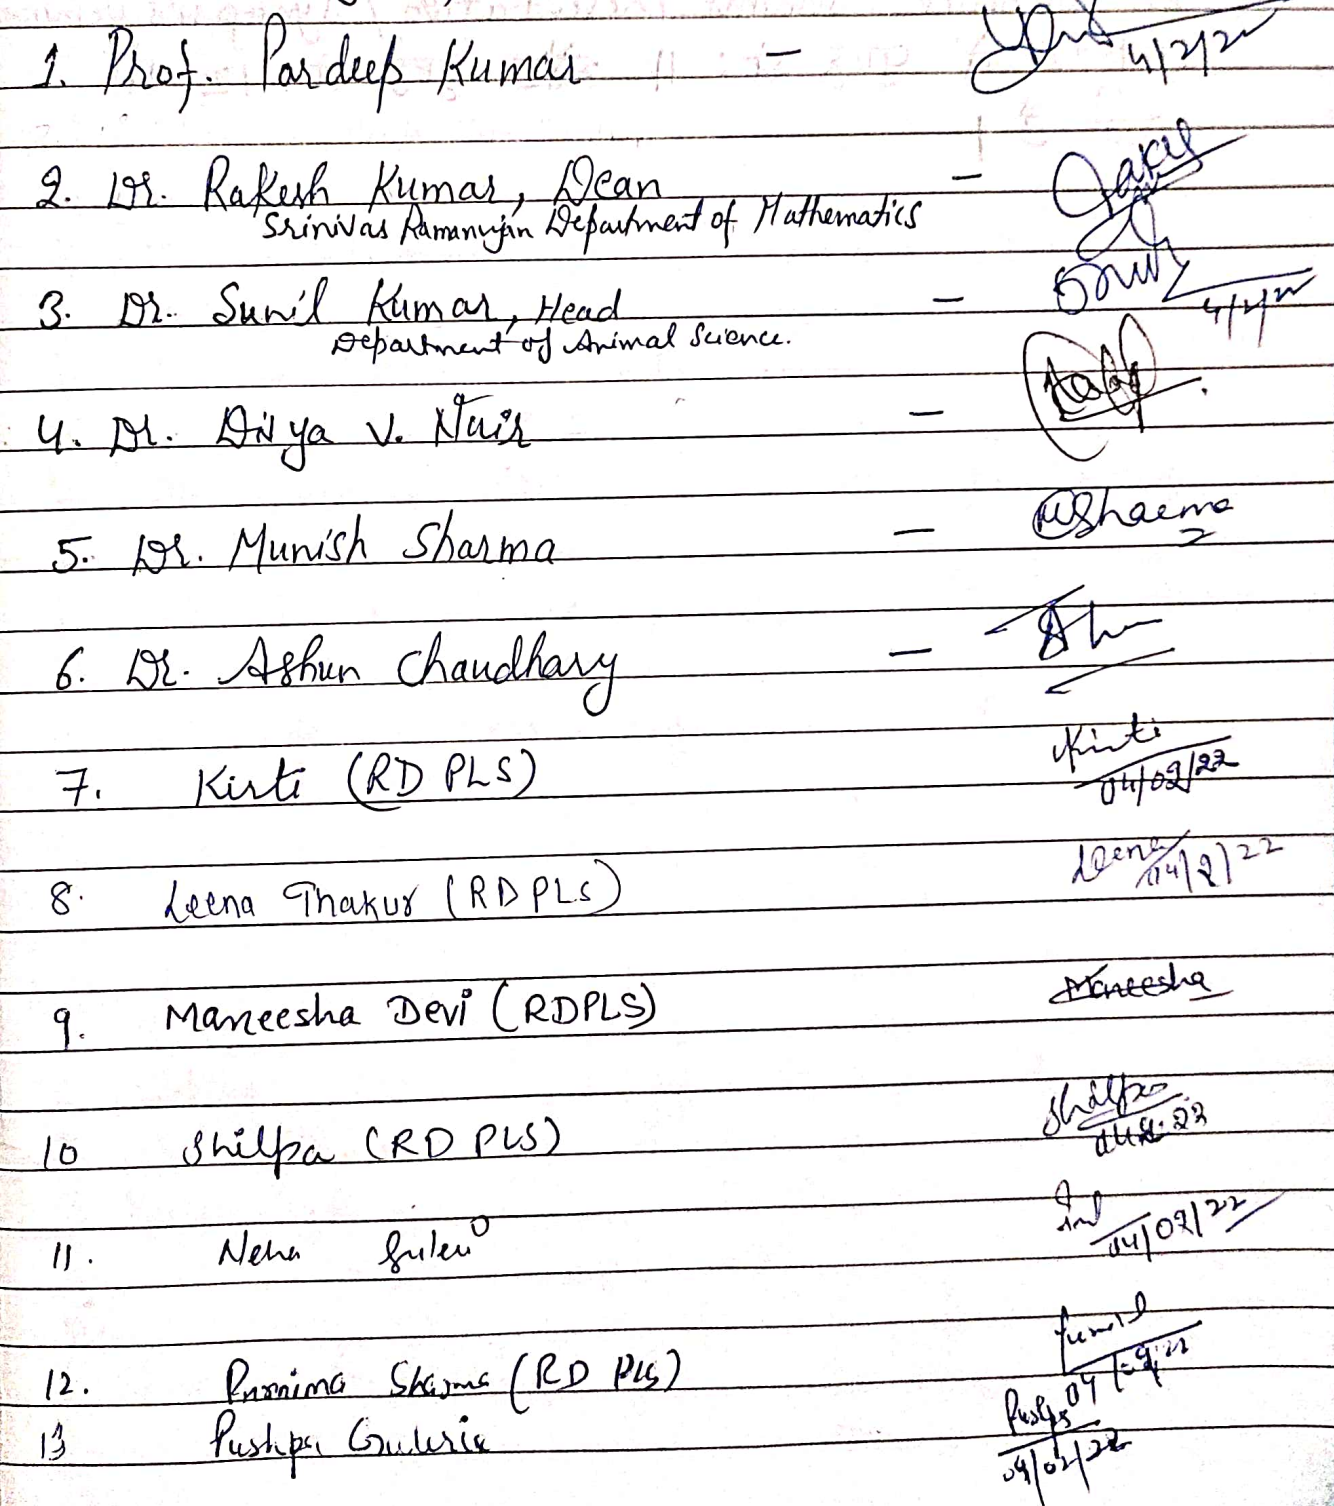 1. Prof. Pardeep Kumar - 4/2/22
2. Dr. Rakesh Kumar, Dean -
Srinivas Ramanujan Department of Mathematics
3. Dr. Sunil Kumar, Head - 4/2/22
Department of Animal Science.
4. Dr. Divya V. Nair -
5. Dr. Munish Sharma - MSharma
6. Dr. Ashun Chaudhary -
7. Kirti (RD PLS) Kirti 04/02/22
8. Leena Thakur (RD PLS) Leena 04/2/22
9. Maneesha Devi (RDPLS) Maneesha
10 Shilpa (RD PLS) Shilpa
11. Neha 04/02/22
12. Purnima Sharma (RD PLS)
13 Pushpa Guleria Pushpa 04/02/22